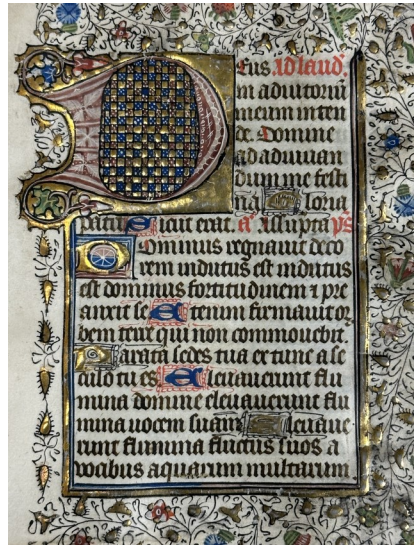 Deus. Ad laud'.
in adiutoriu͞
meum inten
de. Domine
ad adiuuan
dum me festi
na Gloria
patri. Sicut erat. an̄ Assumpta ps̄
Dominus regnauit deco
rem indutus est indutus
est dominus fortitudinem et pre
anxit se Etenim firmauit or
bem terre qui non commouebit.
Parata sedes tua ex tunc a se
culo tu es Eleuauerunt flu
mina domine eleuauerunt flu
mina uocem suam Eleuaue
runt flumina fluctus suos a
vocibus aquarum multarum